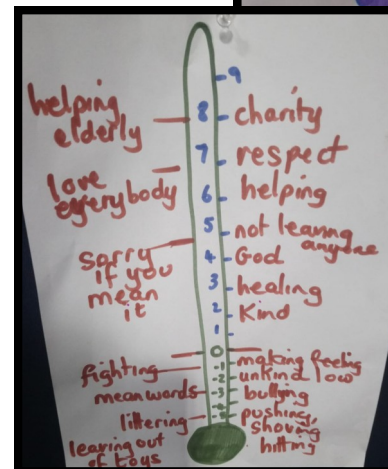 9
helping
elderly
8
charity
7
respect
love
everybody
6
helping
5
not leaving
anyone
sorry
if you
mean
it
4
God
3
healing
2
Kind
1
0
making feeling
low
fighting
-1
unkind
-2
mean words
-3
bullying
littering
pushing,
shoving
hitting
leaving out
of toys